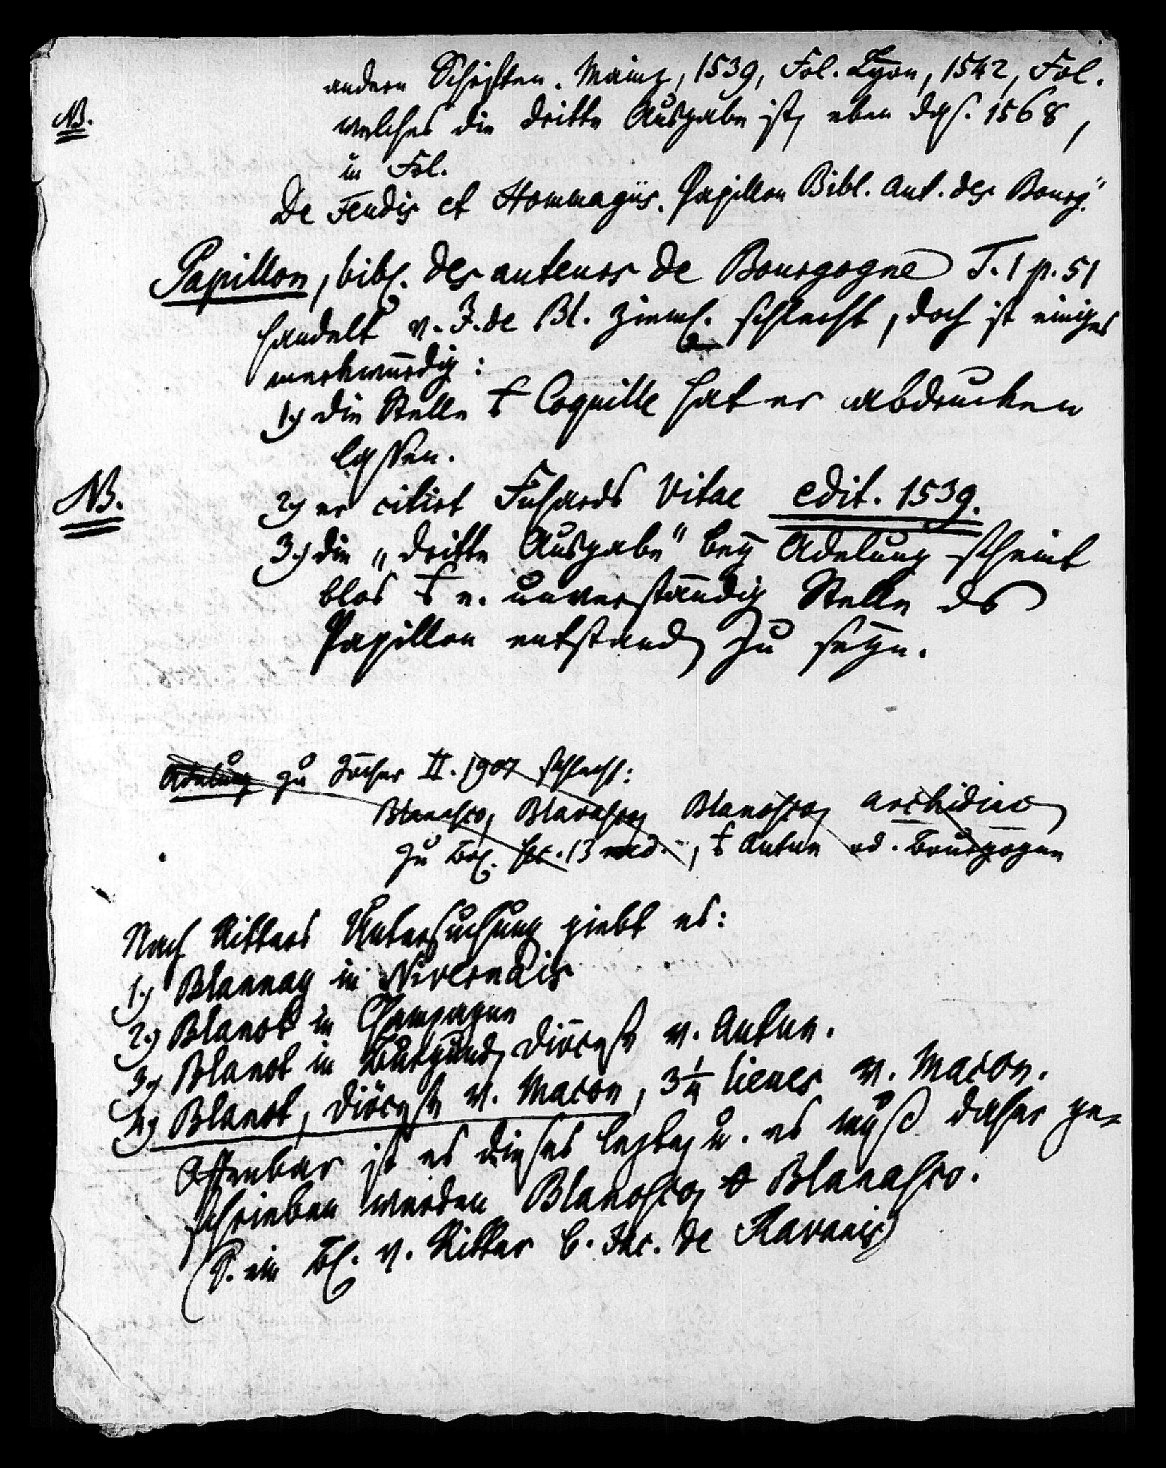 andern Schriften. Mainz, 1539, Fol. Lyon, 1542, Fol.
NB.
welches die dritte Ausgabe ist, eben das. 1568,
in Fol.
De Feudis et Hommagiis. Papillon Bibl. Aut. des Bourg."
Papillon, bibl. des auteurs de Bourgogne T. 1 p. 51
handelt v. J. de Bl. zieml. schlecht, doch ist einiges
merkwürdig:
1.) die Stelle Coquille hat er abdrucken
lassen.
NB.
2.) er citirt Fichards Vitae edit. 1539.
3.) die „dritte Ausgabe" bey Adelung scheint
blos e. unverständig Stelle ds
Papillon entstand zu seyn.
Adelung zu Jöcher II. 1907 schlecht:
Blanasco, Blanasco, Blanosco, archidiac
zu 13 Autun od. Bourgogne
Nach Ritters Untersuchung giebt es:
1.) Blannay in Nivernais
2.) Blanot in Champagne
3.) Blanot in Burgund, Diöcese v. Autun.
4.) Blanot, Diöcese v. Macon, 3 1/4 lieues v. Macon.
Offenbar ist es dieses letzte u. es muß daher ge-
schrieben werden Blanosco, Blanasco.
(S. ein v. Ritter b. Jac. de Ravanis)